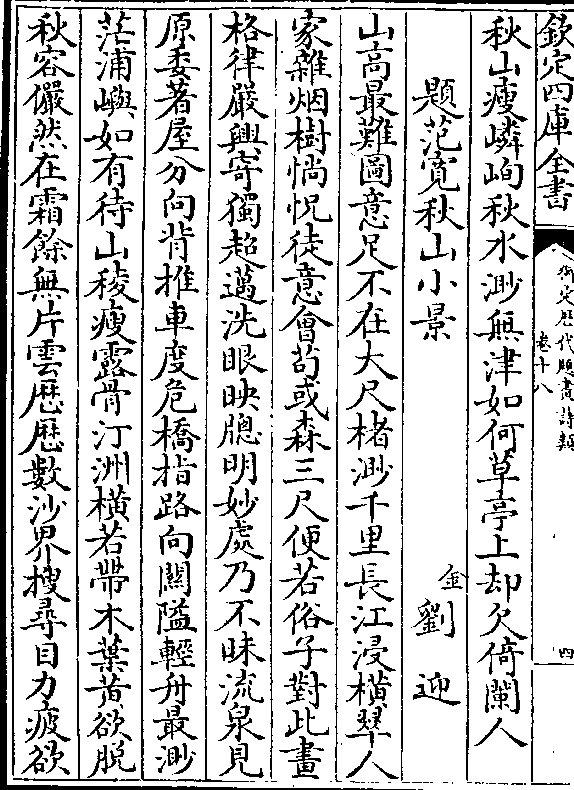 欽定四庫全書
御定歷代題畫詩類
卷十八
四
秋山瘦嶙峋秋水渺無津如何草亭上却欠倚闌人
題范寛秋山小景
金劉迎
山高最難圖意足不在大尺楮渺千里長江浸横翠人
家雜烟樹惝怳徒意會茍或森三尺便若俗子對此畫
格律嚴興寄獨超邁洗眼映牕明妙處乃不昧流泉見
原委著屋分向背推車度危橋指路向關隘輕舟最渺
茫浦嶼如有待山稜瘦露骨汀洲横若帶木葉黄欲脱
秋容儼然在霜餘無片雲厯厯數沙界搜尋目力疲欲